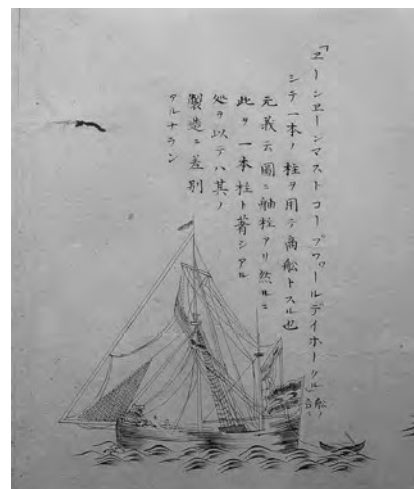 「ヱーンヱーンマストコーブワールデイホークル」舩ノ名ニ
シテ一本ノ柱ヲ用テ商舩トスル也
元義云圖ニ舳柱アリ然ルニ
此ヲ一本柱ト著シアル
処ヲ以テハ其ノ
製造ニ差別
アルナラン